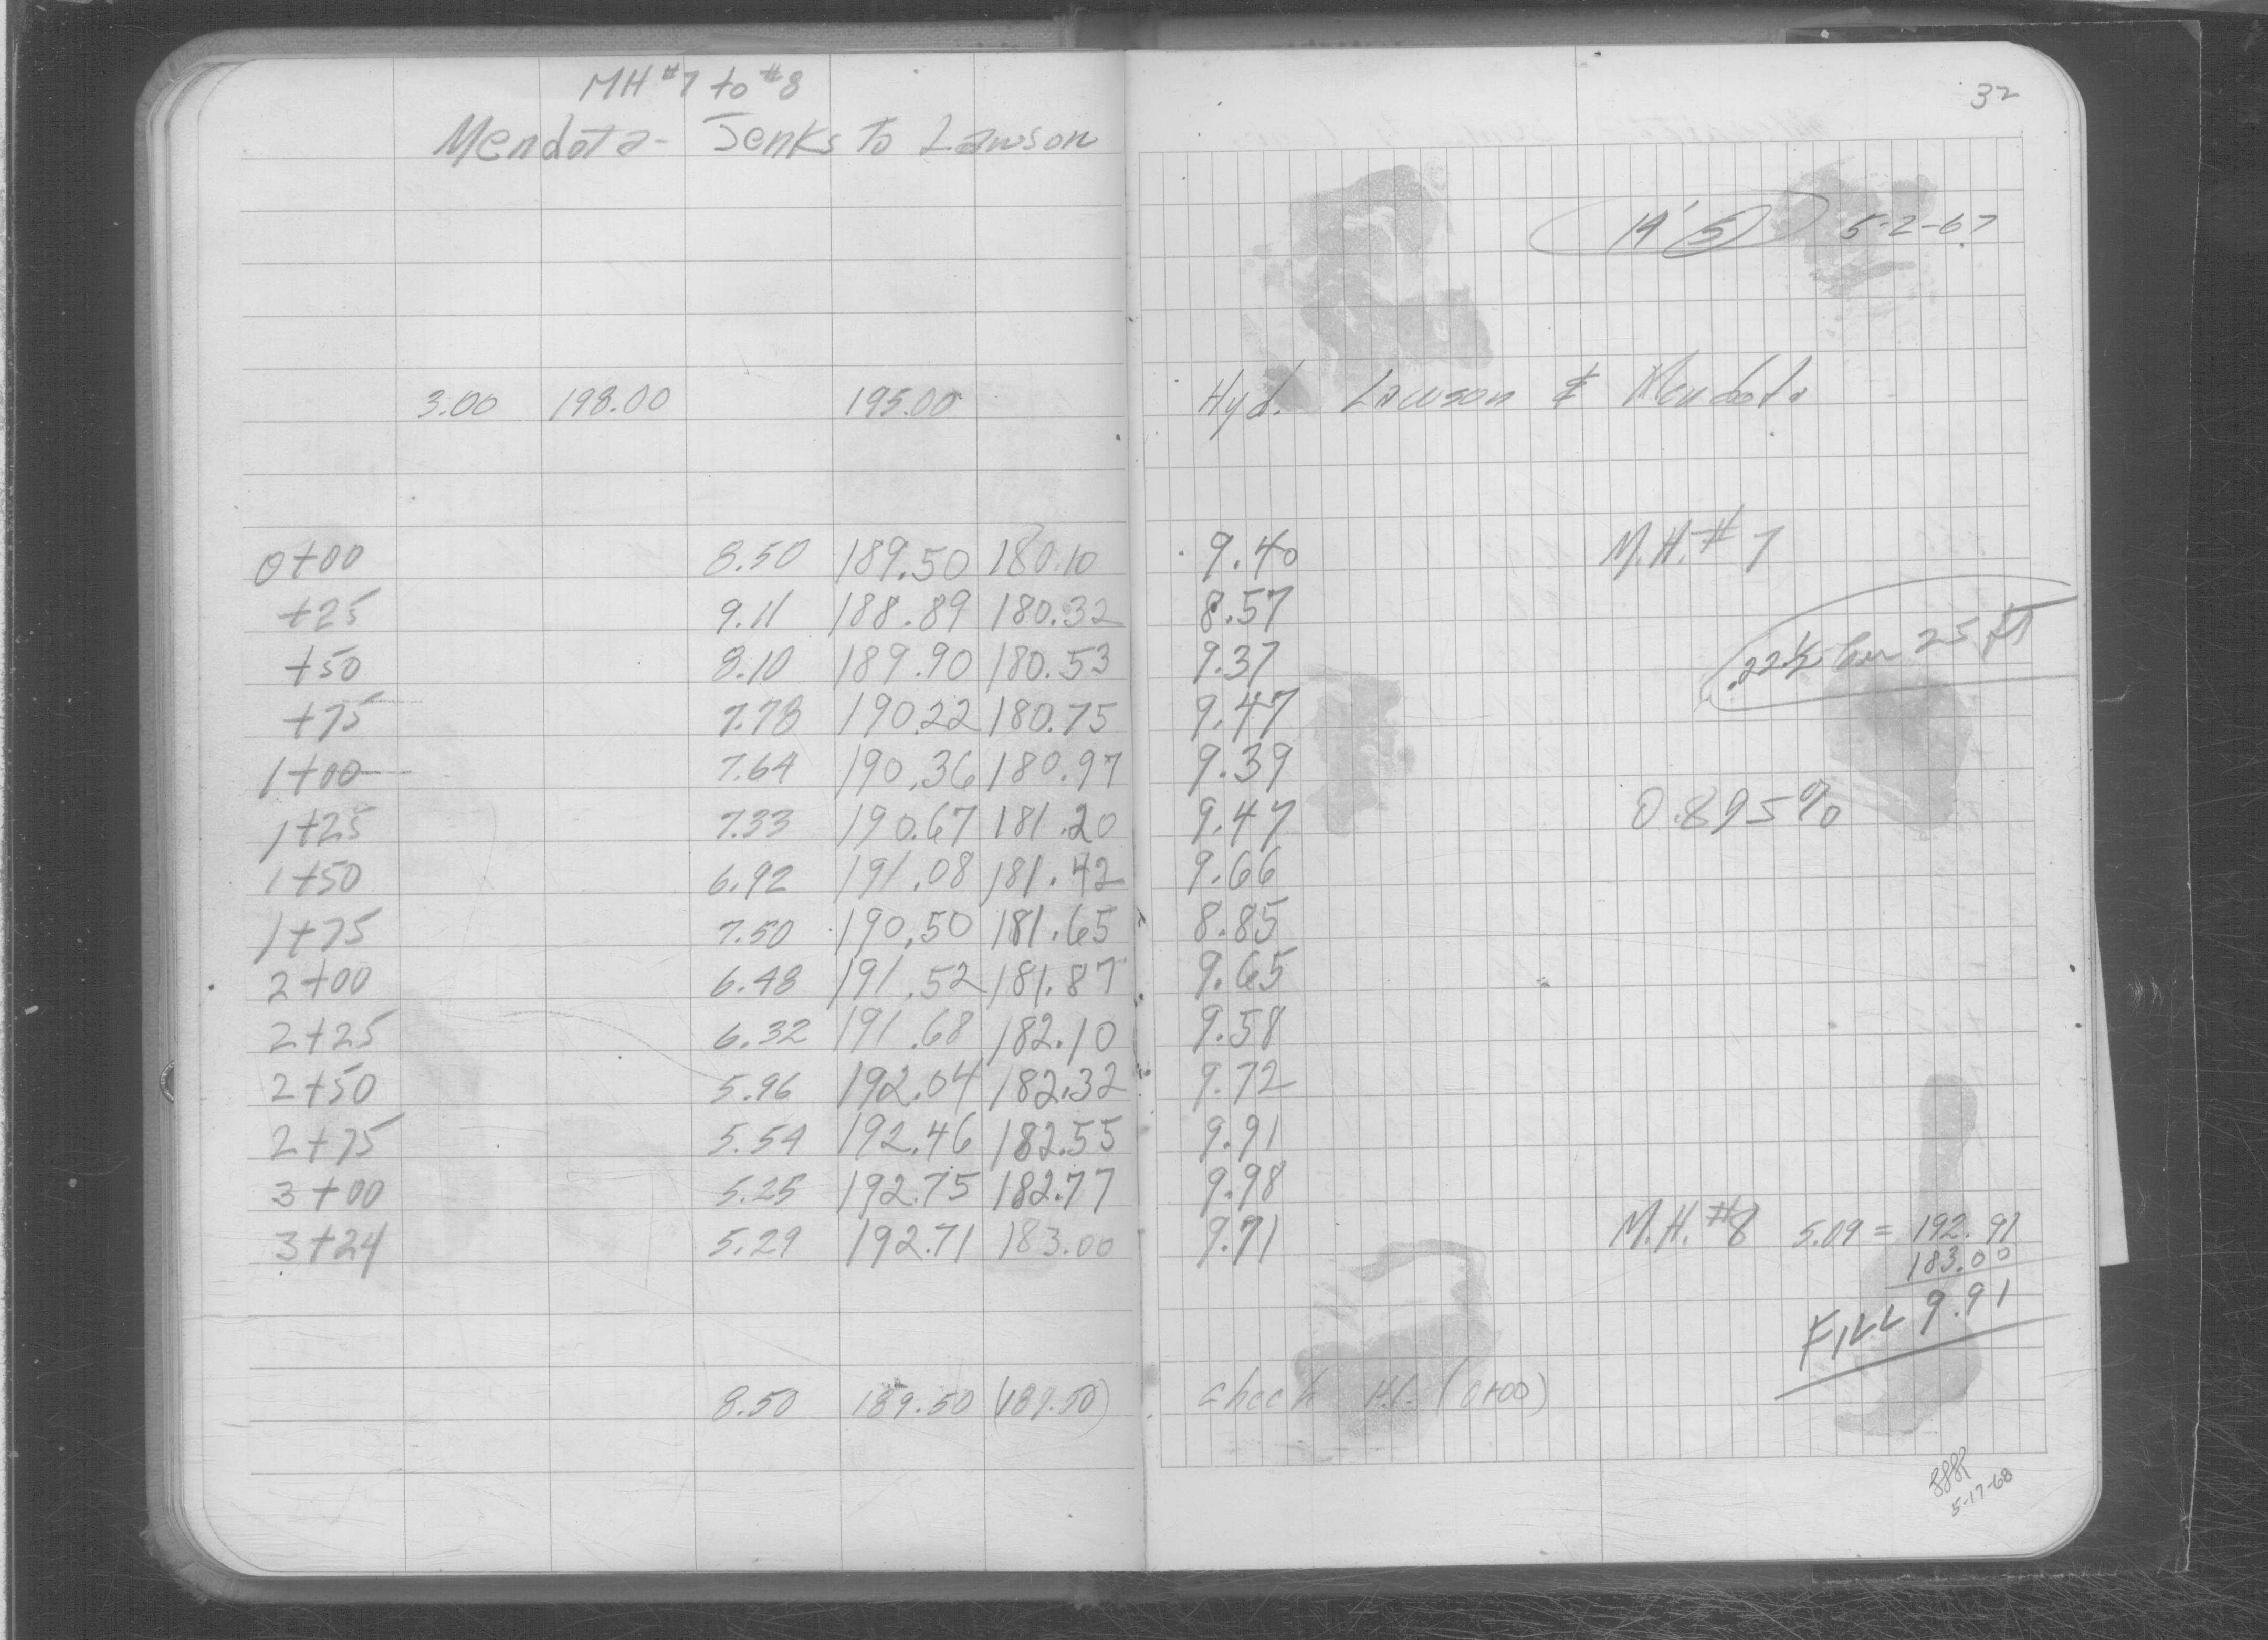 MH #7 to #8
Mendota - Jenks to Lawson
32
5-2-67
3.00 198.00 195.00 Hyd. Lawson & Mendota
0+00 8.50 189.50 180.10 9.40 M.H. # 7
+25 9.11 188.89 180.32 8.57
+50 8.10 189.90 180.53 9.37 .22½ per 25 ft
+75 7.78 190.22 180.75 9.47
1+00 7.64 190.36 180.97 9.39
1+25 7.33 190.67 181.20 9.47 0.895%
1+50 6.92 191.08 181.42 9.66
1+75 7.50 190.50 181.65 8.85
2+00 6.48 191.52 181.87 9.65
2+25 6.32 191.68 182.10 9.58
2+50 5.96 192.04 182.32 9.72
2+75 5.54 192.46 182.55 9.91
3+00 5.25 192.75 182.77 9.98
3+24 5.29 192.71 183.00 9.71 M.H. #8 5.09 = 192.91
183.00
FILL 9.91
8.50 189.50 (189.50) check H.I. (0+00)
5-17-68